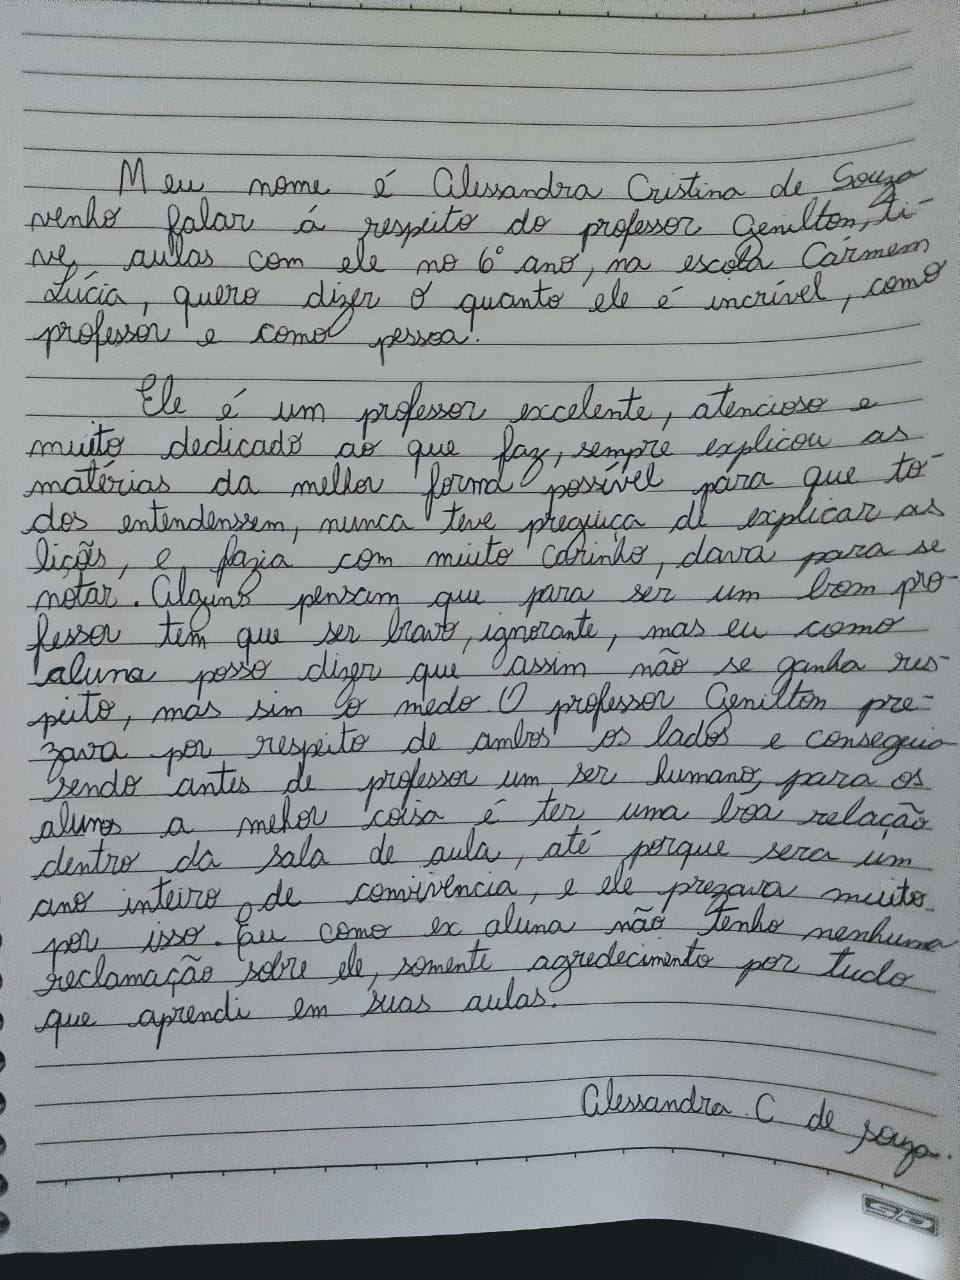 Meu nome é Alessandra Cristina de Souza
venho falar á respeito do professor Genilton, ti-
ve aulas com ele no 6° ano, na escola Cármem
Lúcia, quero dizer o quanto ele é incrível, como
professor e como pessoa.
Ele é um professor excelente, atencioso e
muito dedicado ao que faz, sempre explicou as
matérias da melhor forma possível para que to-
dos entendenssem, nunca teve preguiça de explicar as
liçõs, e fazia com muito carinho, dava para se
notar. Alguns pensam que para ser um bom pro-
fessor tem que ser bravo, ignorante, mas eu como
aluna posso dizer que assim não se ganha res-
peito, mas sim o medo. O professor Genilton pre-
zava por respeito de ambos os lados e conseguia
sendo antes de professor um ser humano, para os
alunos a mehor coisa é ter uma boa relação
dentro da sala de aula, até porque sera um
ano inteiro de convivência, e ele prezava muito
por isso. Eu como ex aluna não tenho nenhuma
reclamação sobre ele, somente agredecimento por tudo
que aprendi em suas aulas.
Alessandra C de souza.
SD